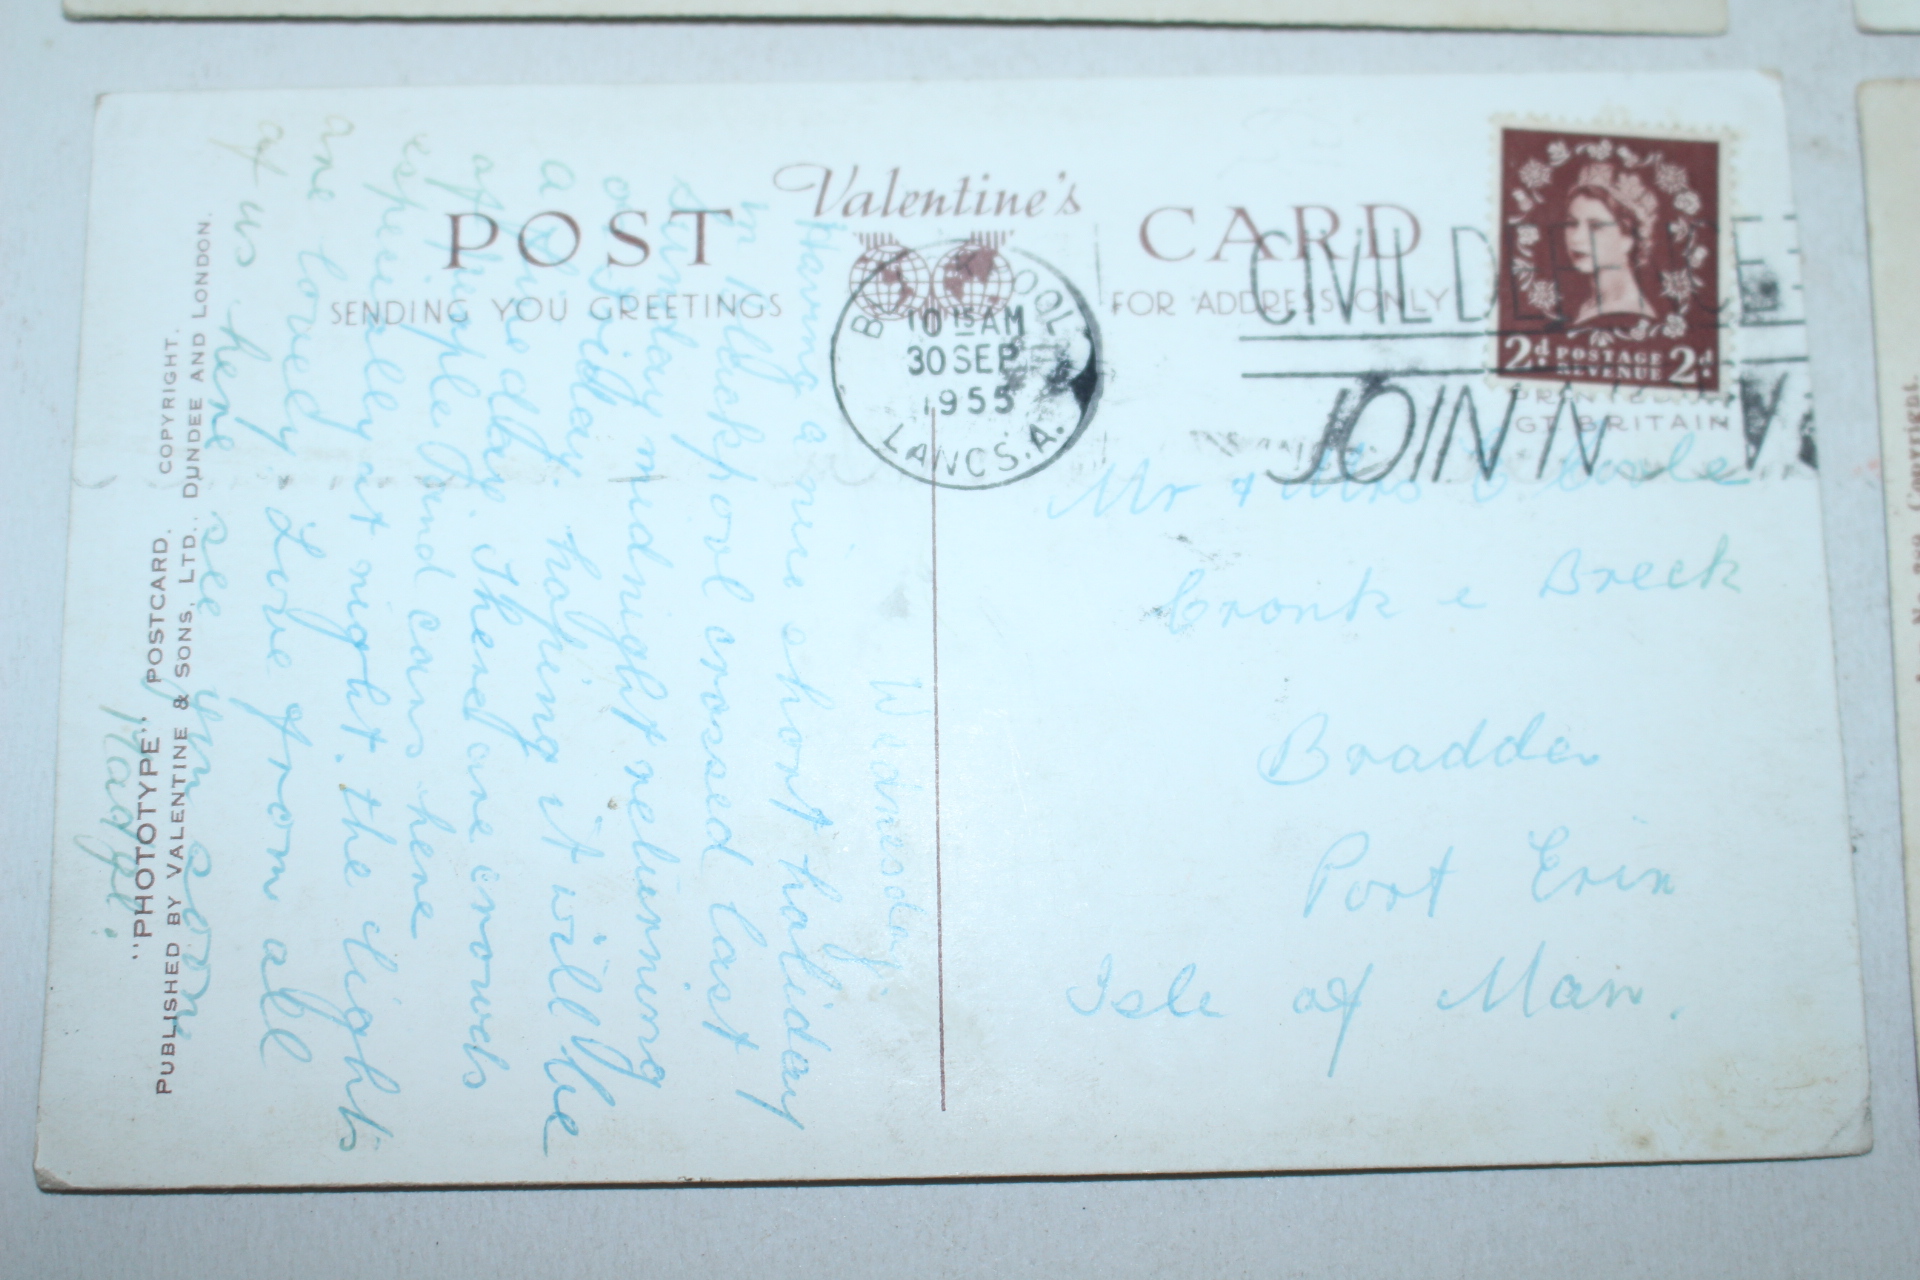 Valentine's
POST CARD
SENDING YOU GREETINGS
FOR ADDRESS ONLY
BLACKPOOL
10 15 AM
30 SEP
1955
LANCS. A.
CIVIL DEFENCE
JOIN N
2d POSTAGE REVENUE 2d
PRINTED IN
GT. BRITAIN
Mr & Mrs
Cronk e Breck
Bradda
Port Erin
Isle of Man.
Wednesday.
Having a nice short holiday
in Blackpool crossed last
Sunday midnight returning
on Friday. hoping it will be
a fine day. There are crowds
of people and cars here
especially at night. the lights
are lovely. Love from all
of us here see you soon
Madge.
"PHOTOTYPE" POSTCARD. COPYRIGHT.
PUBLISHED BY VALENTINE & SONS, LTD., DUNDEE AND LONDON.
Copyright.